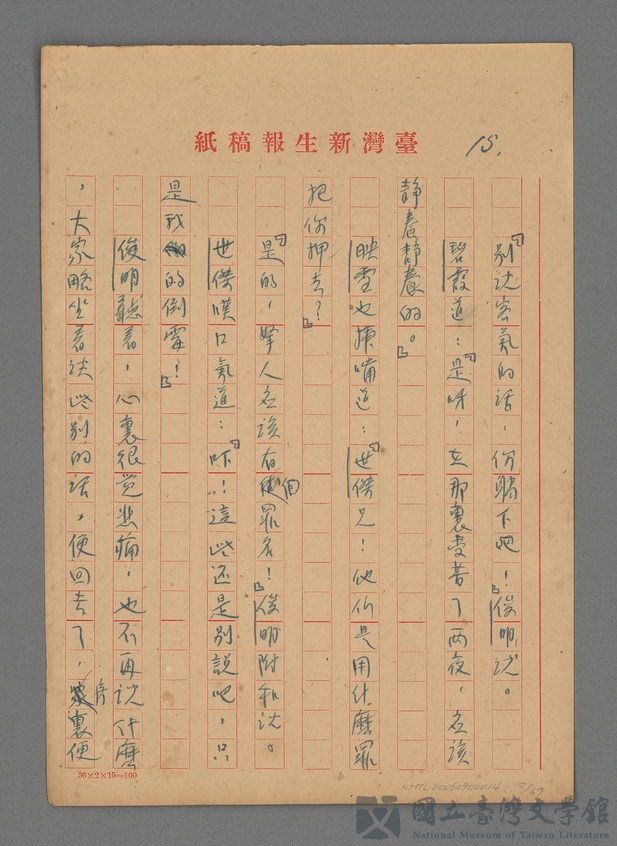 臺灣新生報稿紙
15.
「別說客氣的話，你躺下吧！」俊明說。
碧霞道：「是呀，在那裏受苦了兩夜，應該
靜養靜養的。」
映雪也插嘴道：「世傑兄！他们是用什麼罪
把你押去？」
「是的，拏人應該有個罪名！」俊明附和說。
世傑嘆口氣道：「吓！這些还是別說吧，只
是我的倒霉！」
俊明聽着，心裏很覚悲痛，也不再說什麼
，大家略坐着談些別的话，便回去了，房裏便
36×2×15=100
NMTL20060900014
國立臺灣文学館
National Museum of Taiwan Literature